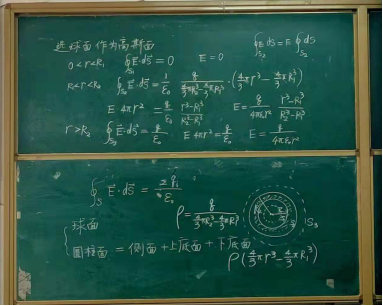 选球面作为高斯面 ∮E dS = E ∮dS
S₂ S₂
0<r<R₁ ∮E⃗·dS⃗ = 0 E = 0
S₁
R₁<r<R₂ ∮E⃗·dS⃗ = 1/ε₀ q/(4/3πR₂³-4/3πR₁³) ·(4/3πr³-4/3πR₁³)
E 4πr² = q/ε₀ (r³-R₁³)/(R₂³-R₁³) E = q/(4πε₀r²) (r³-R₁³)/(R₂³-R₁³)
r>R₂ ∮E⃗·dS⃗ = q/ε₀ E 4πr² = q/ε₀ E = q/(4πε₀r²)
S₃
∮E⃗·dS⃗ = Σqᵢ/ε₀
S
ρ = q/(4/3πR₂³-4/3πR₁³)
S₃
球面
圆柱面 = 侧面+上底面+下底面
ρ(4/3πr³-4/3πR₁³)